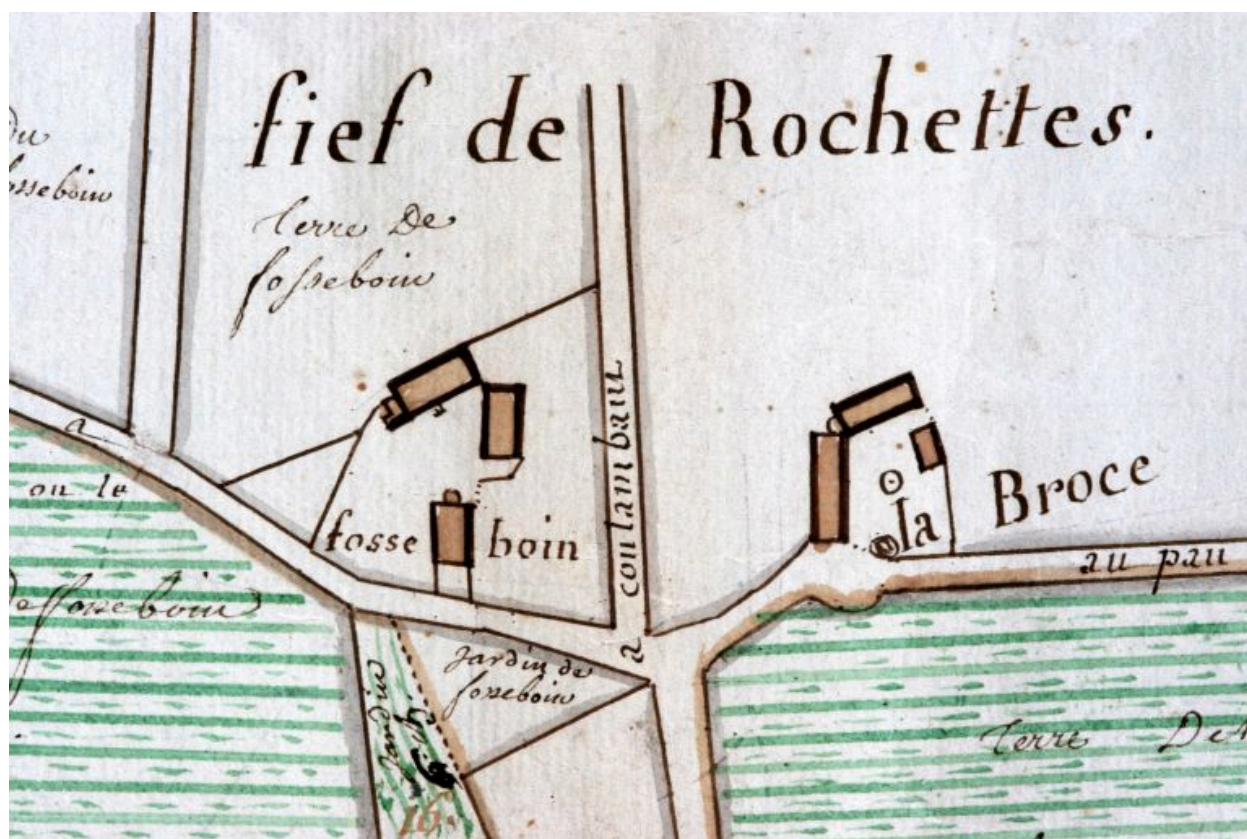 fief de Rochettes.
du
fosseboin
Terre De
fosseboin
a contambau
fosse boin
la Broce
au pau
a
ou le
de fosseboin
Jardin de
fosseboin
Jardin
16.
Terre De